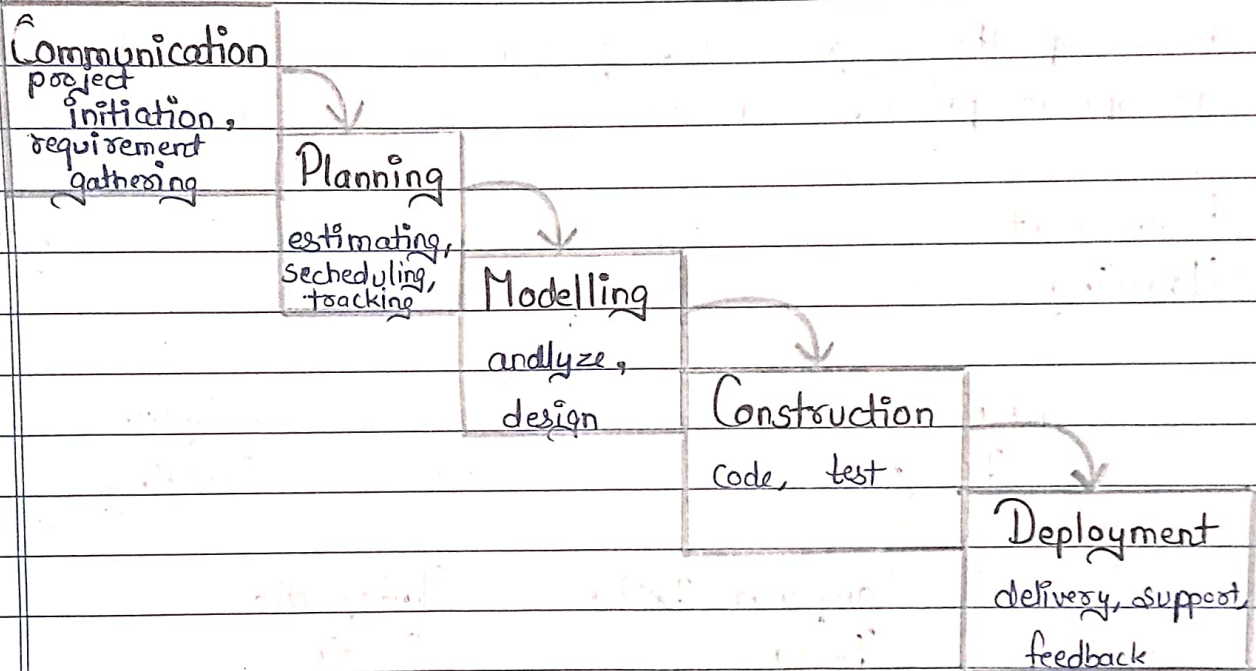 Communication
project
initiation,
requirement
gathering
Planning
estimating,
secheduling,
tracking
Modelling
analyze,
design
Construction
code, test
Deployment
delivery, support,
feedback